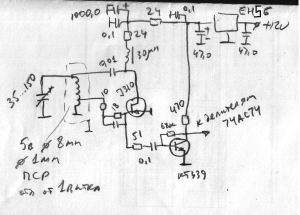 1000,0
0,1
24
0,1
ЕН5Б
+12v
24
30µн
47,0
47,0
0,01
35...150
10
18
J310
470
к делителям
74АС74
5в
ø 8мм
ø 1мм
ПСР
отв от 1 витка
51
68к
0,1
КТ639